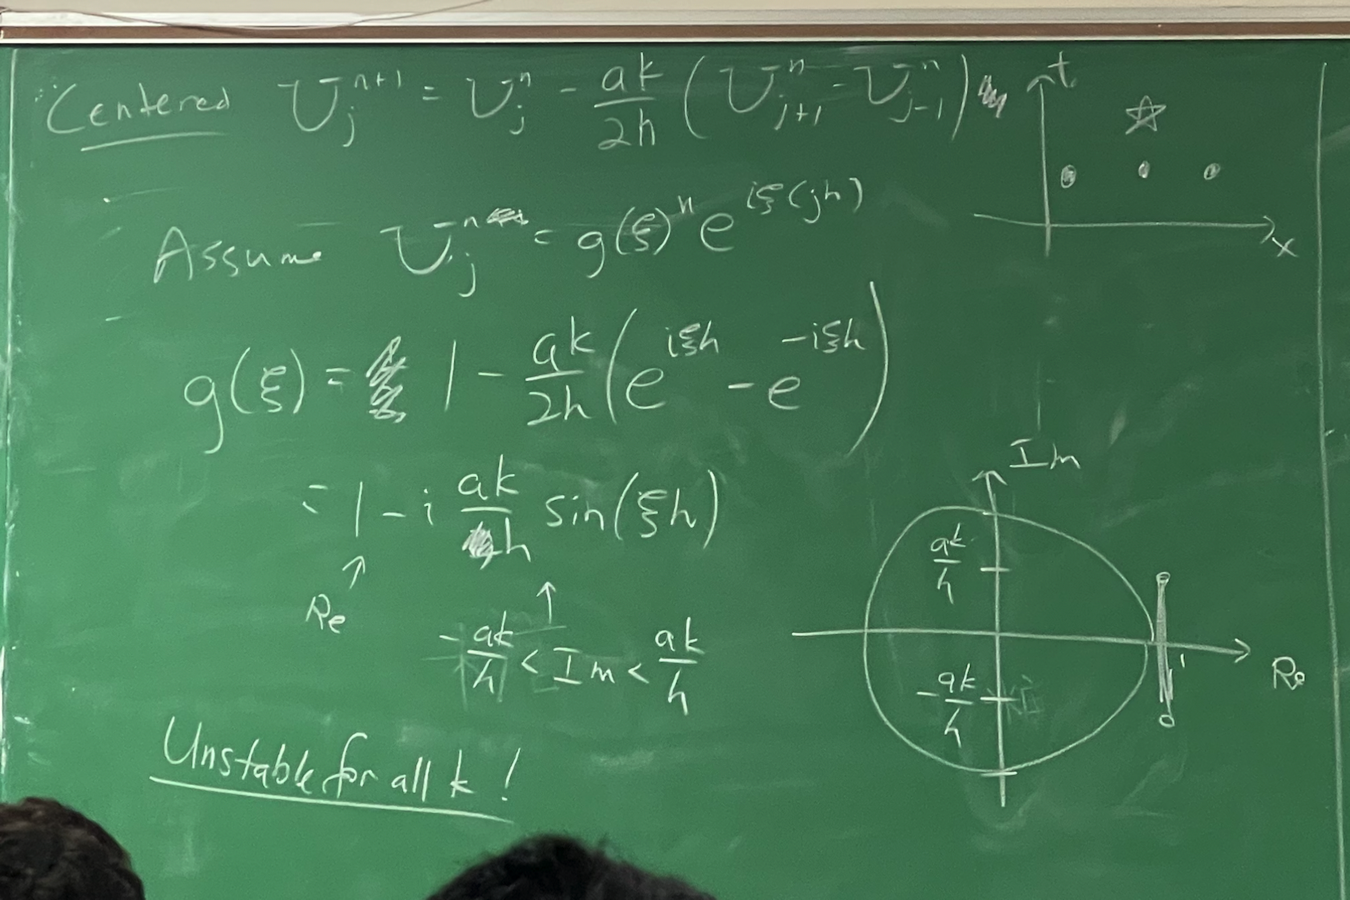 Centered U_j^{n+1} = U_j^n - \frac{ak}{2h} ( U_{j+1}^n - U_{j-1}^n )
t
x
Assume U_j^n = g(ξ)^n e^{iξ(jh)}
g(ξ) = 1 - \frac{ak}{2h} ( e^{iξh} - e^{-iξh} )
= 1 - i \frac{ak}{h} sin(ξh)
Re
-\frac{ak}{h} < Im < \frac{ak}{h}
Unstable for all k !
Im
\frac{ak}{h}
-\frac{ak}{h}
1
Re